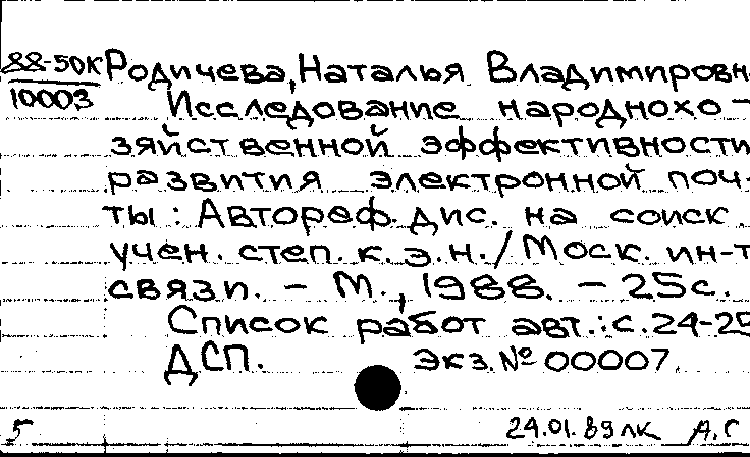 88-50К Родичева, Наталья Владимировн
10003 Исследование народнохо-
зяйственной эффективности
развития электронной поч-
ты: Автореф. дис. на соиск.
учен. степ. к. э. н. / Моск. ин-т
связи. - М., 1988. - 25с.
Список работ авт.: с. 24-25
ДСП. Экз. № 00007.
5 24.01.89 лк А.С